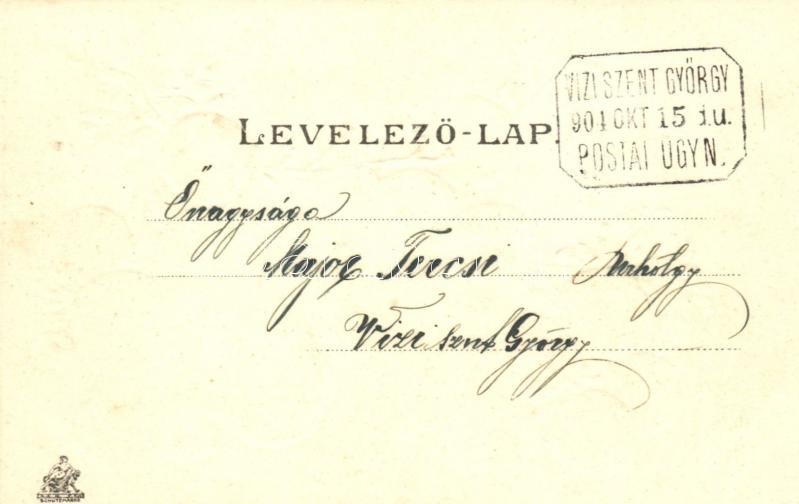 VIZI SZENT GYÖRGY
904 OKT 15 d.u.
POSTAI UGYN.
LEVELEZŐ-LAP.
Őnagysága
Major Tercsi Úrhölgy
Vizi szent György
SCHUTZMARKE